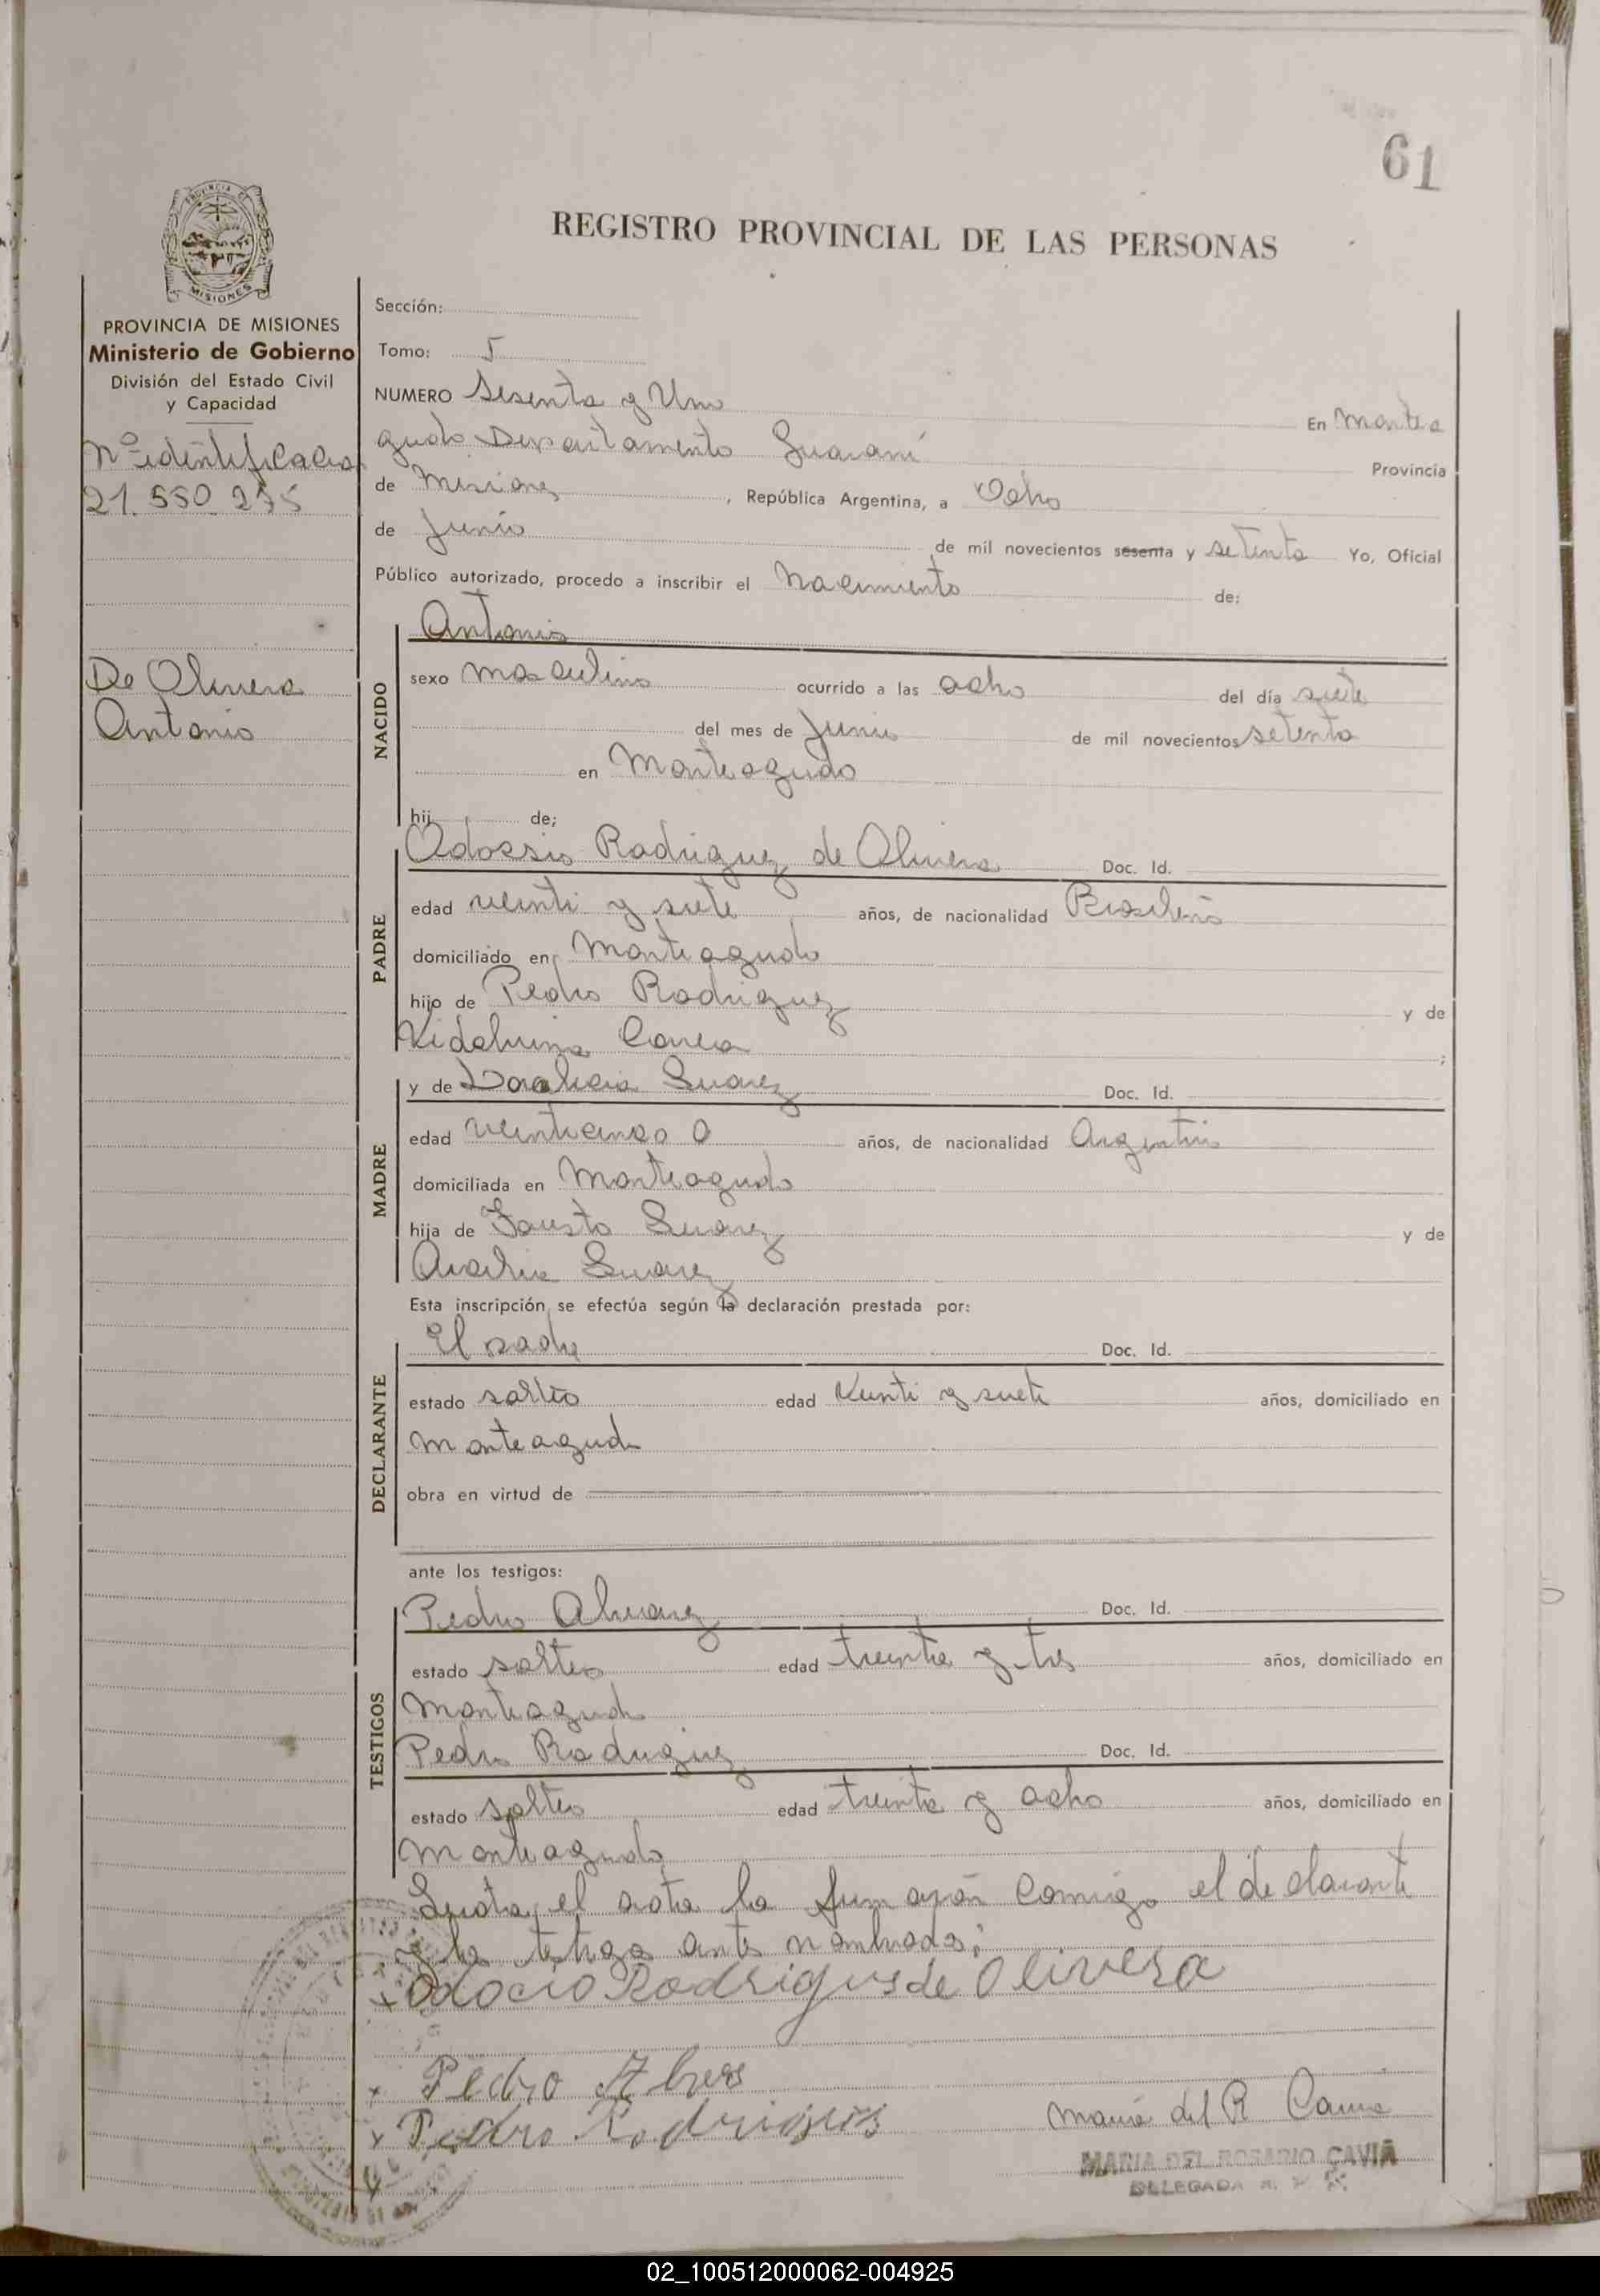 61
REGISTRO PROVINCIAL DE LAS PERSONAS
MISIONES
PROVINCIA DE MISIONES
Ministerio de Gobierno
División del Estado Civil
y Capacidad
Nº identificacion
21.550.275
De Olivera
Antonio
Sección:
Tomo: 5
NUMERO Sesenta y Uno En Montea
gudo Departamento Guaraní Provincia
de Misiones, República Argentina, a Ocho
de Junio de mil novecientos sesenta y setenta Yo, Oficial
Público autorizado, procedo a inscribir el Nacimiento de:
NACIDO
Antonio
sexo masculino ocurrido a las ocho del día siete
del mes de Junio de mil novecientos setenta
en Monteagudo
hij de;
PADRE
Odossio Rodriguez de Olivera Doc. Id.
edad veinti y siete años, de nacionalidad Brasileño
domiciliado en Monteagudo
hijo de Pedro Rodriguez y de
Correa ;
MADRE
y de Suarez Doc. Id.
edad veinticinco años, de nacionalidad Argentino
domiciliada en Monteagudo
hija de Fausto Suarez y de
Suarez
Esta inscripción se efectúa según la declaración prestada por:
DECLARANTE
El padre Doc. Id.
estado soltero edad Veinti y siete años, domiciliado en
Monteagudo
obra en virtud de
ante los testigos:
TESTIGOS
Pedro Alvarez Doc. Id.
estado soltero edad treinta y tres años, domiciliado en
Monteagudo
Pedro Rodriguez Doc. Id.
estado soltero edad treinta y ocho años, domiciliado en
Monteagudo
el acta la conmigo el declarante
y los testigos antes nombrados:
x Odocio Rodrigues de Olivera
x Pedro
x Pedro Rodrigues
Maria del R Cavia
MARIA DEL ROSARIO CAVIA
DELEGADA
02_100512000062-004925